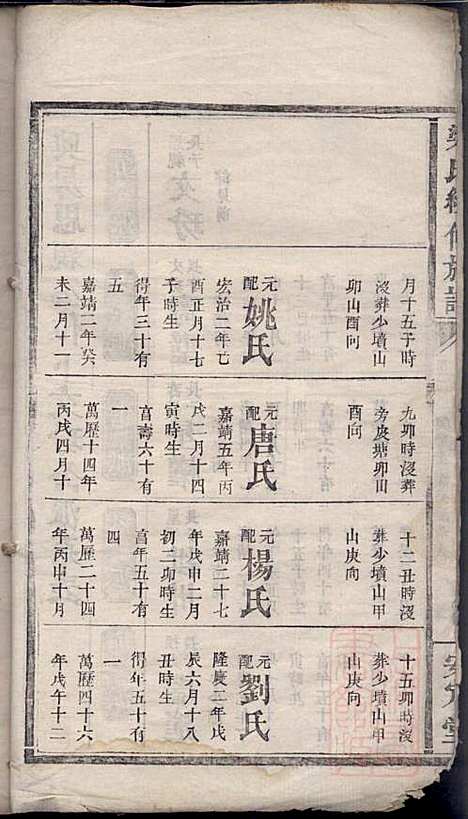 梁氏續修族譜
安定堂
月十五子時
沒葬少墳山
卯山酉向
元配姚氏
宏治二年己
酉正月十七
子時生
得年三十有
五
嘉靖二年癸
未二月十一
九卯時沒葬
旁皮塘卯山
酉向
元配唐氏
嘉靖五年丙
戌二月十四
寅時生
享壽六十有
一
萬歷十四年
丙戌四月十
十二丑時沒
葬少墳山甲
山庚向
元配楊氏
嘉靖二十七
年戊申二月
初二卯時生
享年五十有
四
萬歷二十四
年丙申十月
十五卯時沒
葬少墳山甲
山庚向
元配劉氏
隆慶二年戊
辰六月十八
丑時生
得年五十有
一
萬歷四十六
年戊午十二